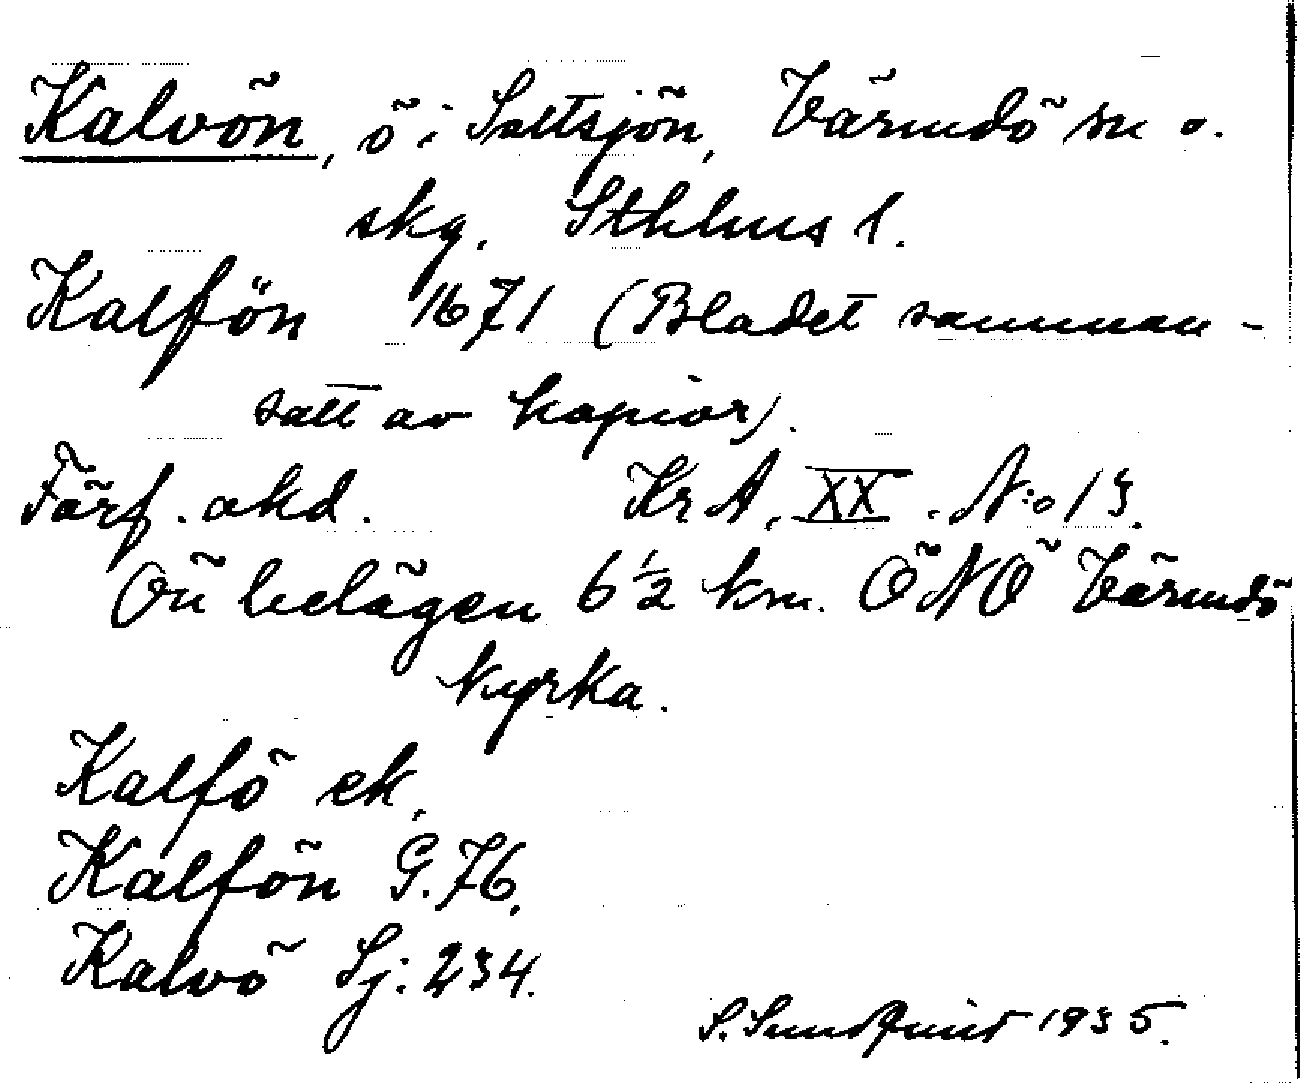 Kalvön, ö i Saltsjön, Värmdö sn o.
skg. Sthlms l.
Kalfön 1671 (Bladet samman-
satt av kopior).
Förf. okd. Kr A, XX. N:o 13.
Ön belägen 6 ½ km. ÖNÖ Värmdö
kyrka.
Kalfö ek.
Kalfön G. 76.
Kalvö Sj: 234.
S. Sundqvist 1935.